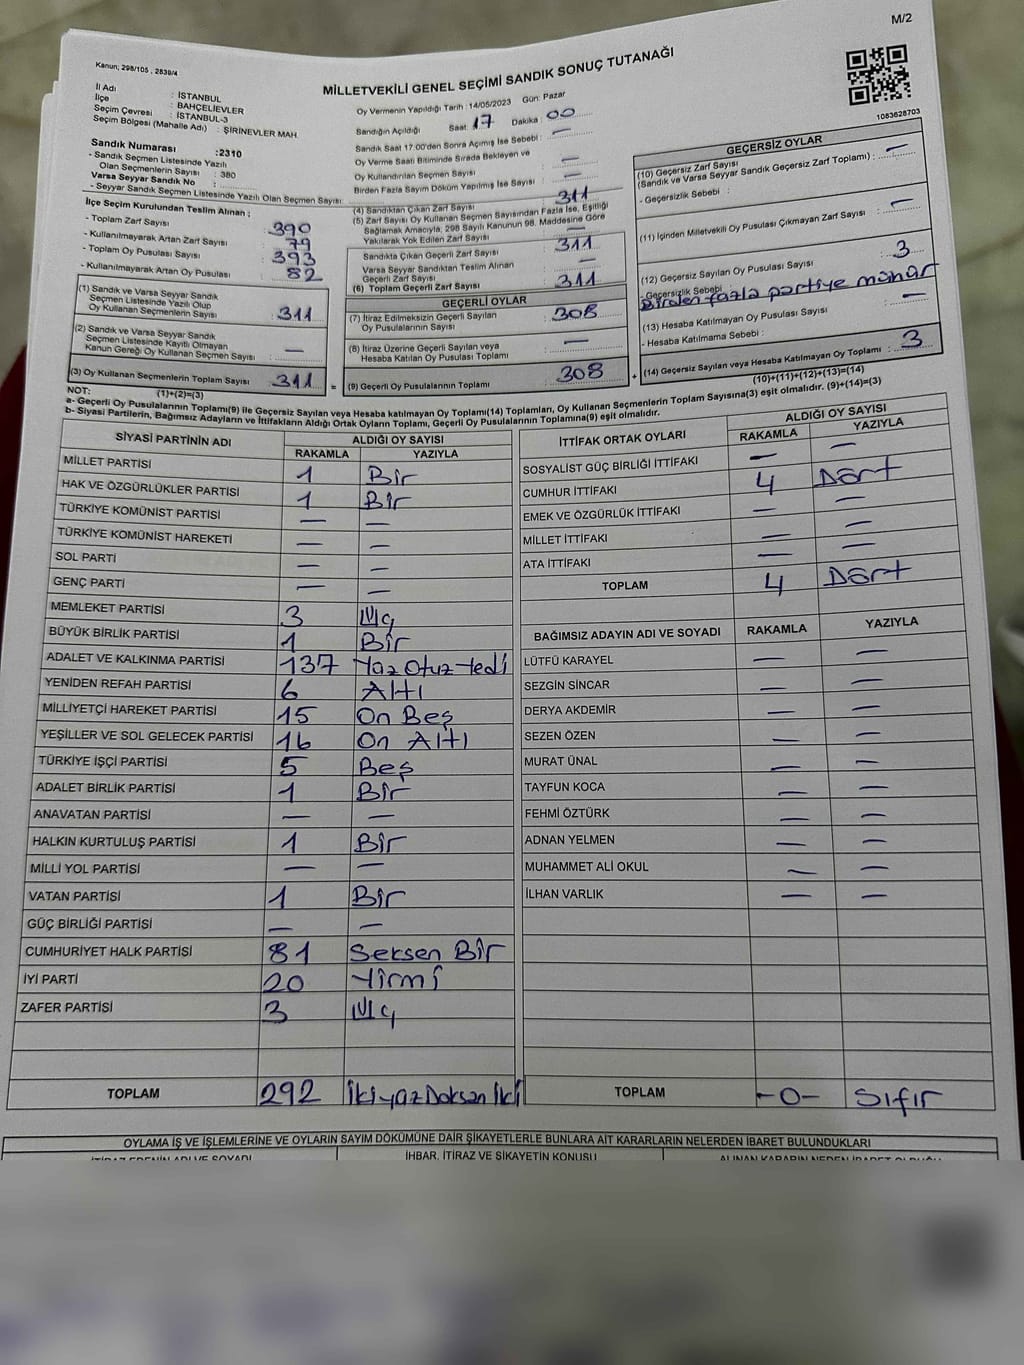 M/2
Kanun; 298/105 , 2839/4
MİLLETVEKİLİ GENEL SEÇİMİ SANDIK SONUÇ TUTANAĞI
1083628703
İl Adı : İSTANBUL
İlçe : BAHÇELİEVLER
Seçim Çevresi : İSTANBUL-3
Seçim Bölgesi (Mahalle Adı) : ŞİRİNEVLER MAH.
Sandık Numarası :2310
- Sandık Seçmen Listesinde Yazılı
Olan Seçmenlerin Sayısı : 380
Varsa Seyyar Sandık No :
- Seyyar Sandık Seçmen Listesinde Yazılı Olan Seçmen Sayısı:
Oy Vermenin Yapıldığı Tarih :14/05/2023 Gün: Pazar
Sandığın Açıldığı Saat: 17 Dakika: 00
Sandık Saat 17:00'den Sonra Açımış İse Sebebi : —
Oy Verme Saati Bitiminde Sırada Bekleyen ve
Oy Kullandırılan Seçmen Sayısı : —
Birden Fazla Sayım Döküm Yapılmış İse Sayısı : —
İlçe Seçim Kurulundan Teslim Alınan ;
- Toplam Zarf Sayısı : 390
- Kullanılmayarak Artan Zarf Sayısı : 79
- Toplam Oy Pusulası Sayısı : 393
- Kullanılmayarak Artan Oy Pusulası : 82
(1) Sandık ve Varsa Seyyar Sandık
Seçmen Listesinde Yazılı Olup
Oy Kullanan Seçmenlerin Sayısı : 311
(2) Sandık ve Varsa Seyyar Sandık
Seçmen Listesinde Kayıtlı Olmayan
Kanun Gereği Oy Kullanan Seçmen Sayısı : —
(3) Oy Kullanan Seçmenlerin Toplam Sayısı : 311 =
(1)+(2)=(3)
(4) Sandıktan Çıkan Zarf Sayısı : 311
(5) Zarf Sayısı Oy Kullanan Seçmen Sayısından Fazla İse, Eşitliği
Sağlamak Amacıyla; 298 Sayılı Kanunun 98. Maddesine Göre
Yakılarak Yok Edilen Zarf Sayısı : —
Sandıkta Çıkan Geçerli Zarf Sayısı : 311
Varsa Seyyar Sandıktan Teslim Alınan
Geçerli Zarf Sayısı : —
(6) Toplam Geçerli Zarf Sayısı : 311
GEÇERLİ OYLAR
(7) İtiraz Edilmeksizin Geçerli Sayılan
Oy Pusulalarının Sayısı : 308
(8) İtiraz Üzerine Geçerli Sayılan veya
Hesaba Katılan Oy Pusulası Toplamı : —
(9) Geçerli Oy Pusulalarının Toplamı : 308 +
GEÇERSİZ OYLAR
(10) Geçersiz Zarf Sayısı
(Sandık ve Varsa Seyyar Sandık Geçersiz Zarf Toplamı) : —
- Geçersizlik Sebebi :
(11) İçinden Milletvekili Oy Pusulası Çıkmayan Zarf Sayısı : —
(12) Geçersiz Sayılan Oy Pusulası Sayısı : 3
- Geçersizlik Sebebi : Birden fazla partiye mühür
(13) Hesaba Katılmayan Oy Pusulası Sayısı : —
- Hesaba Katılmama Sebebi :
(14) Geçersiz Sayılan veya Hesaba Katılmayan Oy Toplamı : 3
(10)+(11)+(12)+(13)=(14)
NOT:
a- Geçerli Oy Pusulalarının Toplamı(9) ile Geçersiz Sayılan veya Hesaba katılmayan Oy Toplamı(14) Toplamları, Oy Kullanan Seçmenlerin Toplam Sayısına(3) eşit olmalıdır. (9)+(14)=(3)
b- Siyasi Partilerin, Bağımsız Adayların ve İttifakların Aldığı Ortak Oyların Toplamı, Geçerli Oy Pusulalarının Toplamına(9) eşit olmalıdır.
SİYASİ PARTİNİN ADI ALDIĞI OY SAYISI
RAKAMLA YAZIYLA
MİLLET PARTİSİ 1 Bir
HAK VE ÖZGÜRLÜKLER PARTİSİ 1 Bir
TÜRKİYE KOMÜNİST PARTİSİ — —
TÜRKİYE KOMÜNİST HAREKETİ — —
SOL PARTİ — —
GENÇ PARTİ — —
MEMLEKET PARTİSİ 3 Üç
BÜYÜK BİRLİK PARTİSİ 1 Bir
ADALET VE KALKINMA PARTİSİ 137 Yüz Otuz Yedi
YENİDEN REFAH PARTİSİ 6 Altı
MİLLİYETÇİ HAREKET PARTİSİ 15 On Beş
YEŞİLLER VE SOL GELECEK PARTİSİ 16 On Altı
TÜRKİYE İŞÇİ PARTİSİ 5 Beş
ADALET BİRLİK PARTİSİ 1 Bir
ANAVATAN PARTİSİ — —
HALKIN KURTULUŞ PARTİSİ 1 Bir
MİLLİ YOL PARTİSİ — —
VATAN PARTİSİ 1 Bir
GÜÇ BİRLİĞİ PARTİSİ — —
CUMHURİYET HALK PARTİSİ 81 Seksen Bir
İYİ PARTİ 20 Yirmi
ZAFER PARTİSİ 3 Üç
TOPLAM 292 İkiyüz Doksan İki
İTTİFAK ORTAK OYLARI ALDIĞI OY SAYISI
RAKAMLA YAZIYLA
SOSYALİST GÜÇ BİRLİĞİ İTTİFAKI — —
CUMHUR İTTİFAKI 4 Dört
EMEK VE ÖZGÜRLÜK İTTİFAKI — —
MİLLET İTTİFAKI — —
ATA İTTİFAKI — —
TOPLAM 4 Dört
BAĞIMSIZ ADAYIN ADI VE SOYADI RAKAMLA YAZIYLA
LÜTFÜ KARAYEL — —
SEZGİN SİNCAR — —
DERYA AKDEMİR — —
SEZEN ÖZEN — —
MURAT ÜNAL — —
TAYFUN KOCA — —
FEHMİ ÖZTÜRK — —
ADNAN YELMEN — —
MUHAMMET ALİ OKUL — —
İLHAN VARLIK — —
TOPLAM -0- Sıfır
OYLAMA İŞ VE İŞLEMLERİNE VE OYLARIN SAYIM DÖKÜMÜNE DAİR ŞİKAYETLERLE BUNLARA AİT KARARLARIN NELERDEN İBARET BULUNDUKLARI
İTİRAZ EDENİN ADI VE SOYADI İHBAR, İTİRAZ VE ŞİKAYETİN KONUSU ALINAN KARARIN NEDEN İBARET OLDUĞU